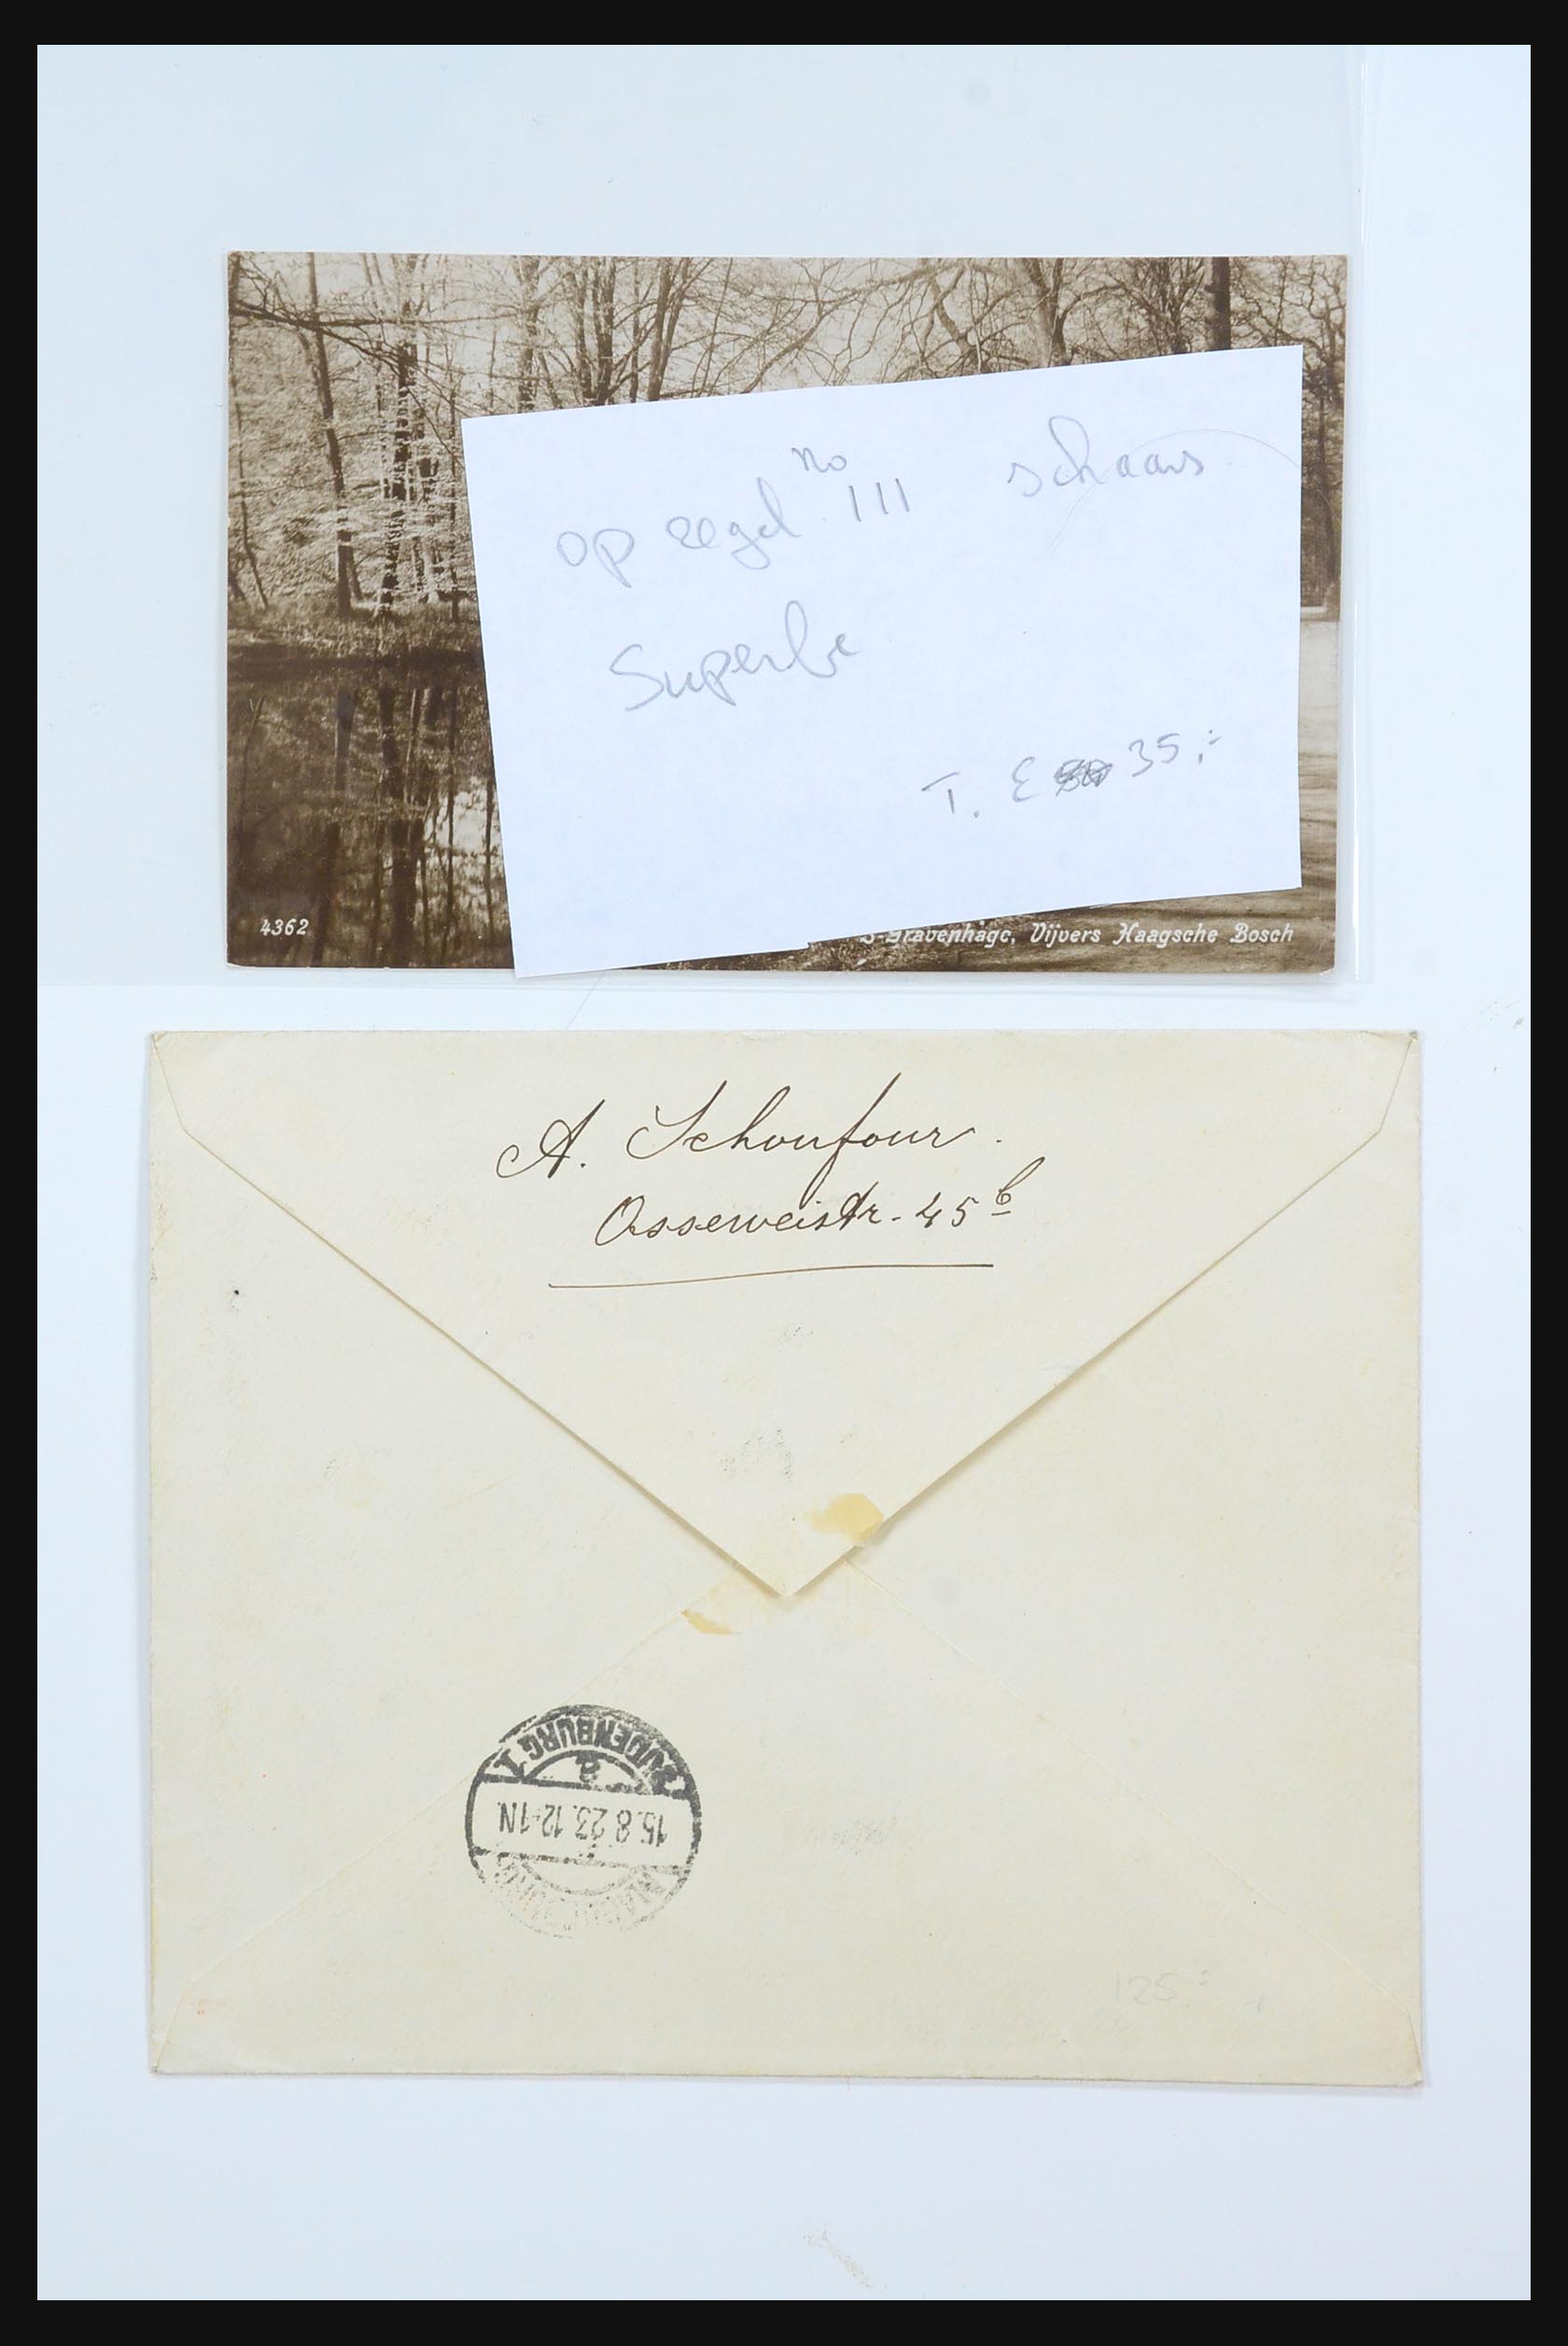 no
op zegel 111 schaars
Superbe
T. € 35,-
4362
s-Gravenhage, Vijvers Haagsche Bosch
A. Schoufour.
Osseweistr. 45 b
SUDENBURG 1
a
15.8.23.12-1N.
125,-